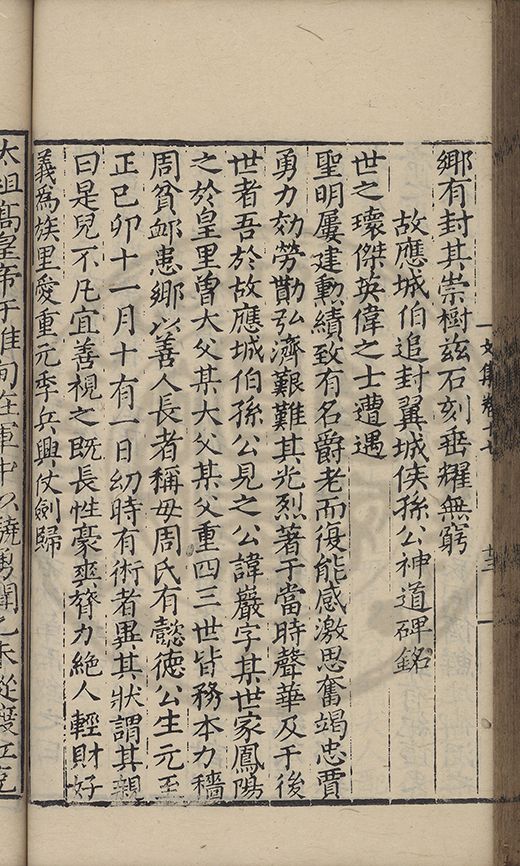 鄉有封其崇樹兹石刻垂耀無窮
故應城伯追封翼城侯孫公神道碑銘
世之瓌傑英偉之士遭遇
聖明屢建勳績致有名爵老而復能感激思奮竭忠賈
勇力効勞勩弘濟艱難其光烈著于當時聲華及于後
世者吾於故應城伯孫公見之公諱巖字某世家鳳陽
之於皇里曾大父某大父某父重四三世皆務本力穡
周貧䘏患鄉以善人長者稱母周氏有懿德公生元至
正己卯十一月十有一日幼時有術者異其狀謂其親
曰是兒不凡宜善視之既長性豪爽膂力絶人輕財好
義為族里愛重元季兵興仗劍歸
太祖髙皇帝于淮甸在軍中以驍勇聞乙未從渡江克
文集卷十七
十三